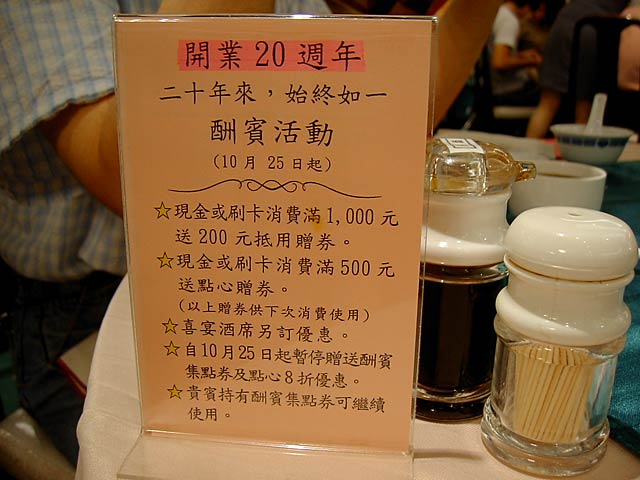 開業20週年
二十年來，始終如一
酬賓活動
(10月25日起)
☆現金或刷卡消費滿1,000元
送200元抵用贈券。
☆現金或刷卡消費滿500元
送點心贈券。
(以上贈券供下次消費使用)
☆喜宴酒席另訂優惠。
☆自10月25日起暫停贈送酬賓
集點券及點心8折優惠。
☆貴賓持有酬賓集點券可繼續
使用。